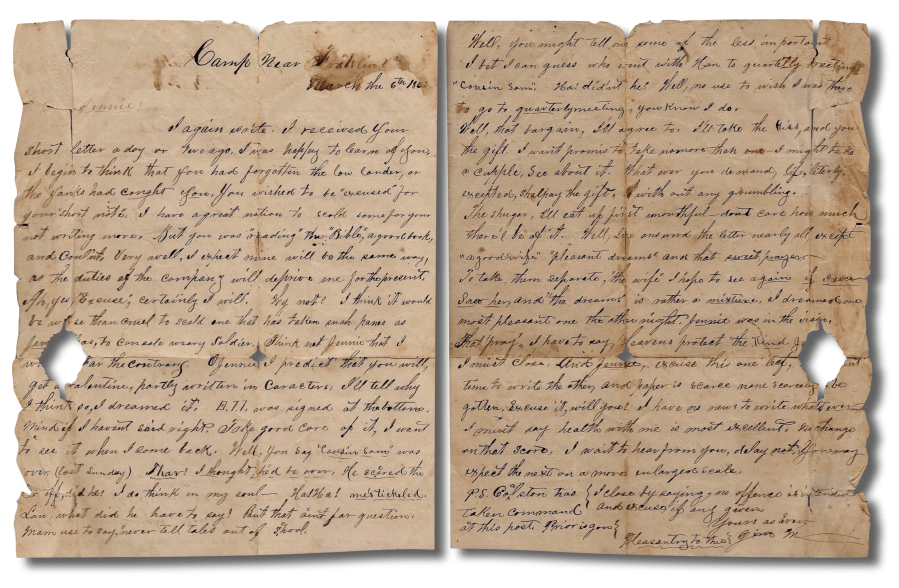 Camp Near Franklin
March the 6th 186
Jennie!
I again write. I received your
short letter a day or two ago. I was happy to learn of you.
I begin to think that you had forgotten the low lander, or
the Yanks had caught you. You wished to be "excused" for
your short note. I have a great notion to scold some for your
not writing more. But you was "reading" the "Bible," a good book,
and Couldn't, Very well, I expect mine will be the same way,
as the duties of the company will deprive me for the present.
Oh, yes, "Excuse", certainly I will. Why not! I think it would
be worse than cruel to scold one that has taken such panes as
to console weary Soldier. Think not Jennie that I
far the contrary. O Jennie I predict that you will
get a valentine, partly written in Caracters, I'll tell why
I think so, I dreamed it. B.T.I. was signed at the bottom.
Mind if I havent said right. Take good care of it, I want
to see it when I come back. Well, you say "Cousin Sam was
over (last Sunday) I thought he'd be over. He scared the
off, did he! I do think in my soul Ha! Ha! me tickeled.
Law, what did he have to say! But that aint far question.
Mam use to say, never tell tales out of Shool.
Well, you might tell me some of the less important
I bet I can guess who went with Han to quartilly meeting
"Cousin Sam". Ha! didn't he! Well, no use to wish I was there
to go to quarterlymeeting, you know I do.
Well, that bargain, I'll agree to. I'll take the kiss, and you
the gift. I want promis to take no more than one I might take
a cupple, See about it. What ever you demand,
excepted, shall pay the gift. with out any grumbling.
The shugar, I'll eat up first mouthful dont care how much
there'l be of it. Well, and the letter nearly all except
"a good wife" "pleasant dreams" and that sweet prayer
To take them separate, "the wife" I hope to see again if I ever
Saw her, and "the dreams" is rather a mixture. I dreamed one
most pleasant one the other night. Jennie was in the
that pray. I have to say, Heavens protect the Kind
I must close. And Jennie, excuse this one leaf,
time to write the other, and paper is scarce none scarcely be
gotten, Excuse it, will you! I have no news to write whatever
I must say health with me is most excellent, no change
on that score. I wait to hear from you, delay not, You may
expect the next on a more enlarged scale.
P.S. Colston has I close by saying, no offence is intended
taken command and excuse if any given
at this post. Prior is gone
Yours as Ever
Pleasantry to thee Jim M